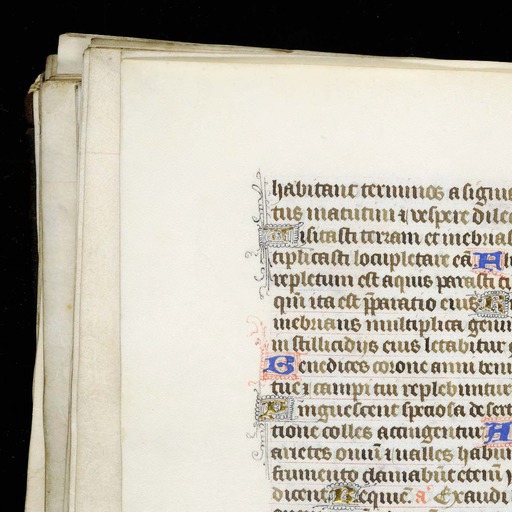 habitant terminos a signis
tus matutini ⁊ vespere delec
Uisitasti terram et inebrias
tiplicasti locupletare eā. H
repletum est aquis parasti ci
qm̄ ita est p̄paratio eius R
inebrians multiplica genim
in stillicidijs eius letabitur g
Benedices corone anni beni
tue ⁊ campi tui replebuntur
Pinguescent speciosa desert
tione colles accingentur
arietes ouiū ⁊ ualles habun
frumento clamabūt etenī
dicent Requiē. a͛ Exaudi